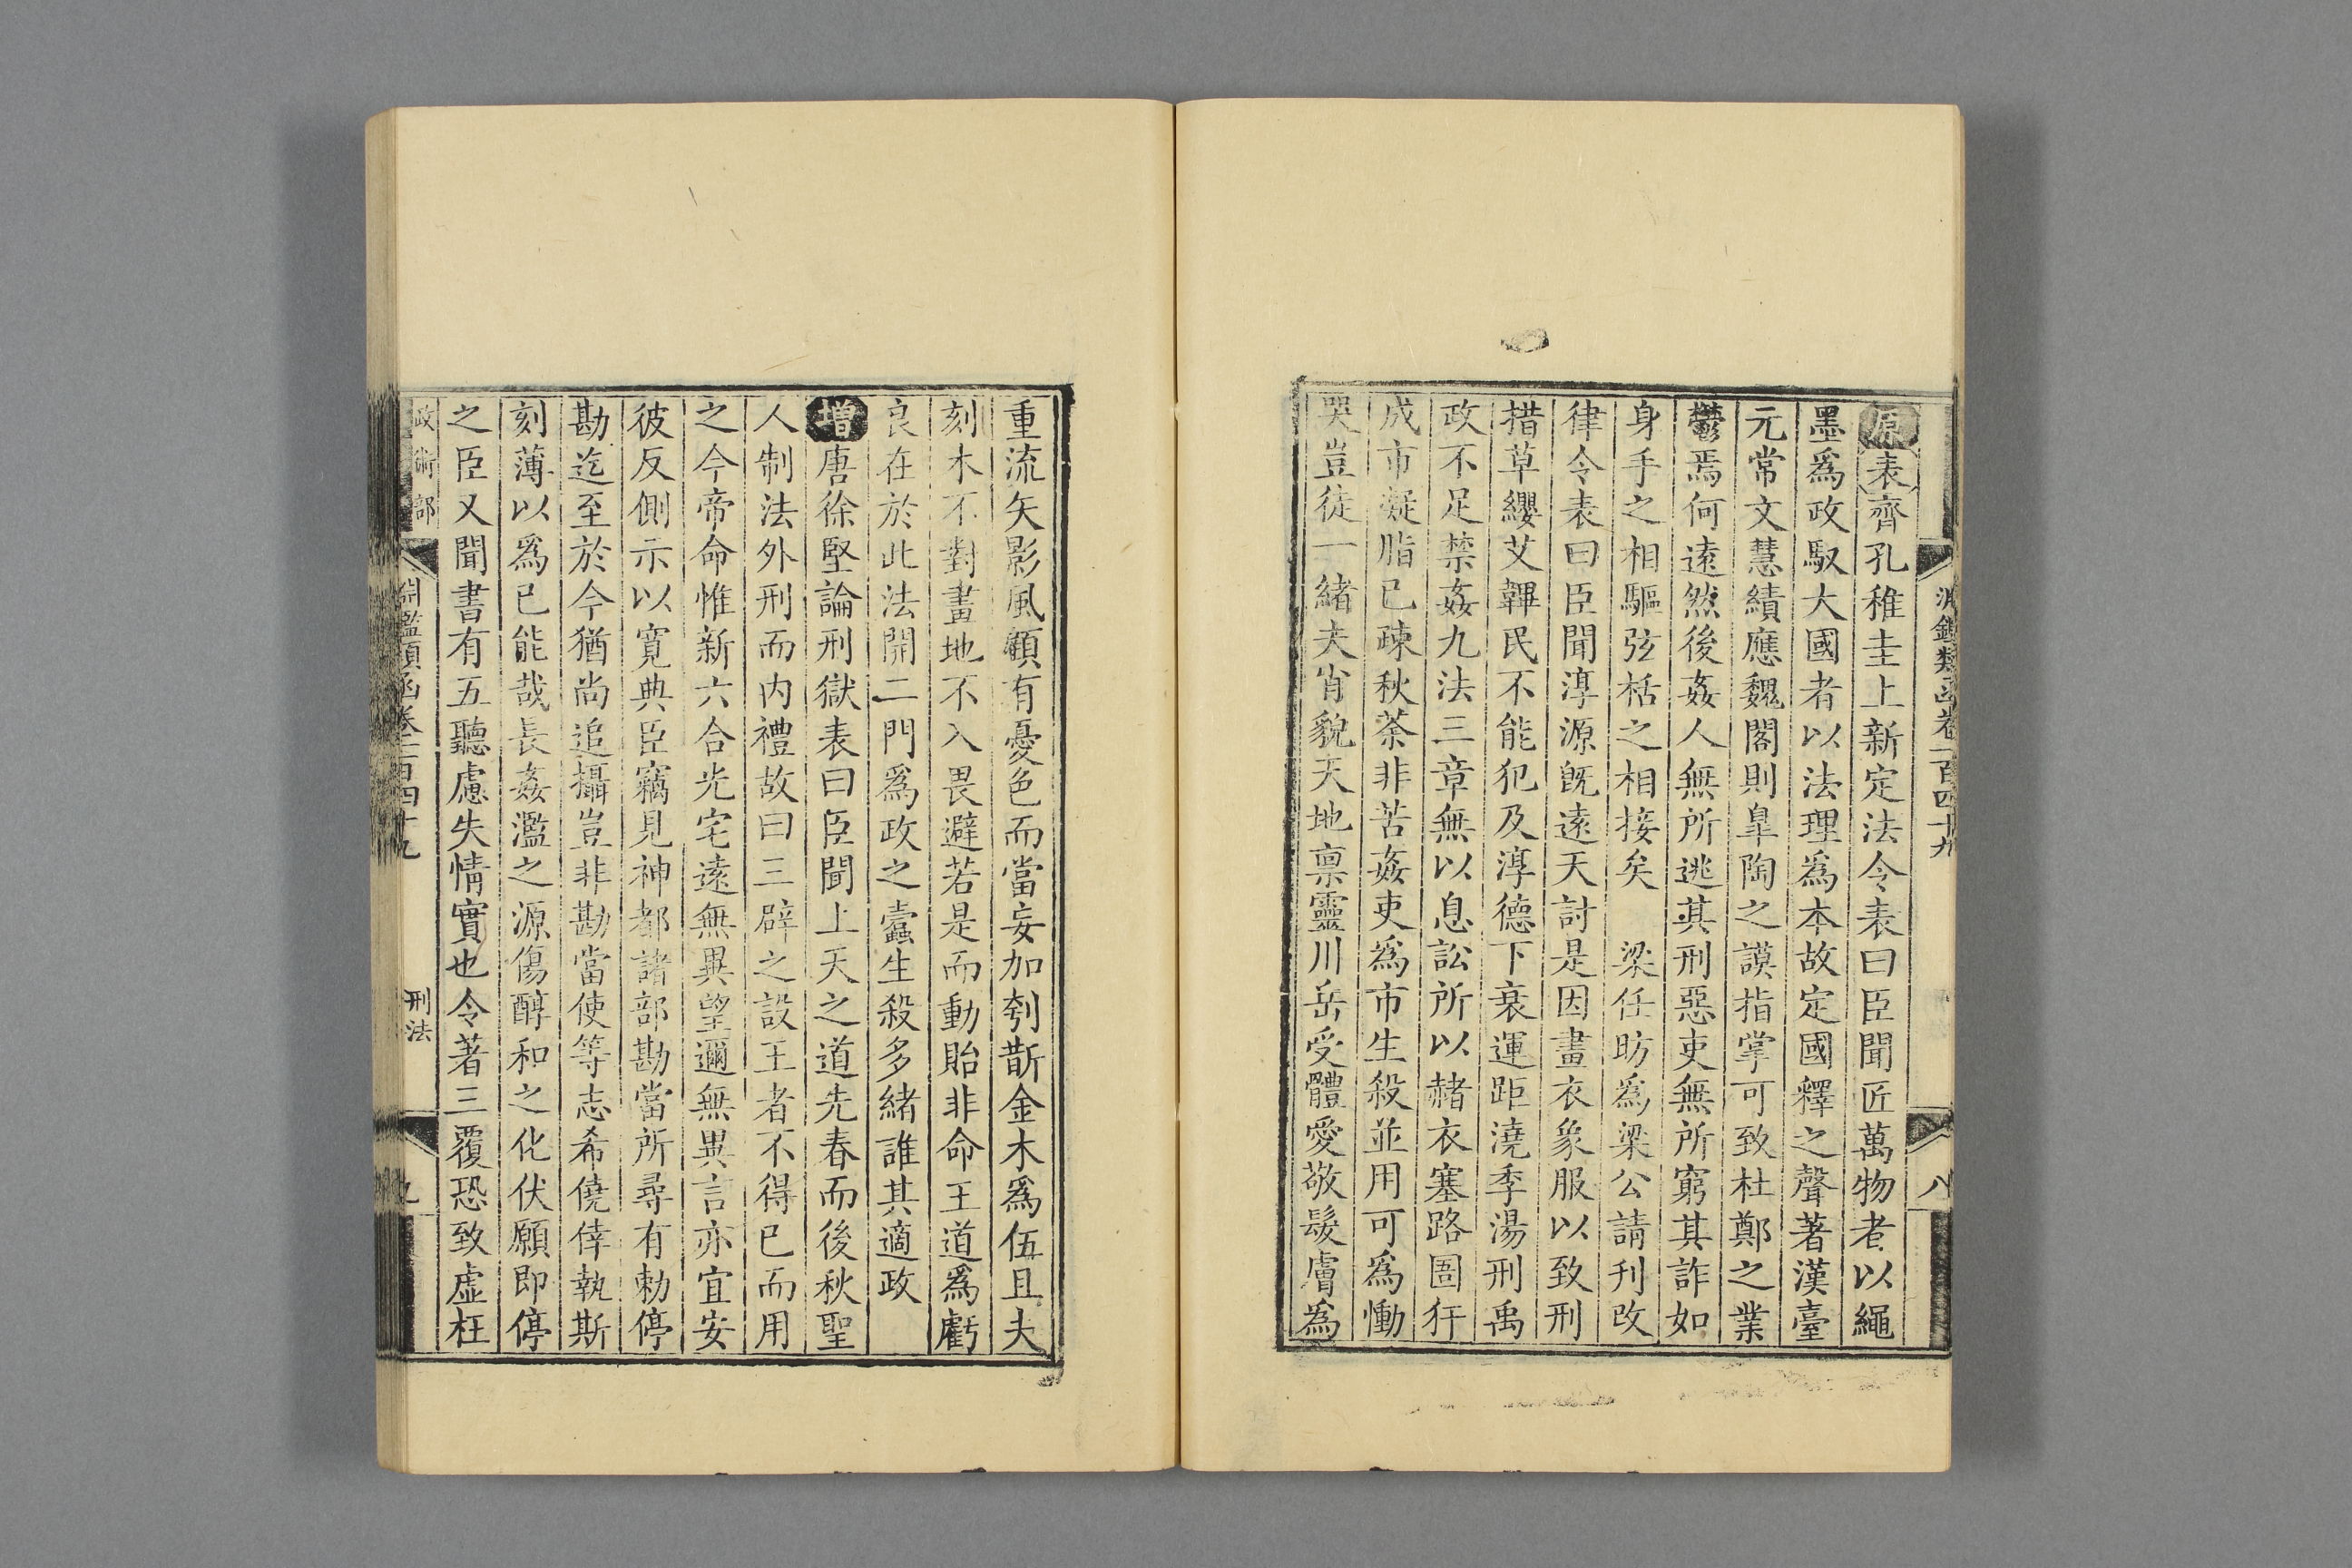 淵鑑類函卷一百四十九
八
原表齊孔稚圭上新定法令表曰臣聞匠萬物者以繩
墨爲政馭大國者以法理爲本故定國釋之聲著漢臺
元常文慧績應魏閣則臯陶之謨指掌可致杜鄭之業
鬱焉何遠然後姦人無所逃其刑惡吏無所窮其詐如
身手之相驅弦栝之相接矣　梁任昉爲梁公請刋改
律令表曰臣聞淳源旣遠天討是因畫衣象服以致刑
措草纓艾韠民不能犯及淳德下衰運距澆季湯刑禹
政不足禁姦九法三章無以息訟所以赭衣塞路圄犴
成市凝脂已疎秋荼非苦姦吏爲市生殺並用可爲慟
哭豈徒一緒夫肖貌天地禀靈川岳受體愛敬髮膚爲
重流矢影風顧有憂色而當妄加刳斮金木爲伍且夫
刻木不對畫地不入畏避若是而動貽非命王道爲虧
良在於此法開二門爲政之蠹生殺多緒誰其適政
增唐徐堅論刑獄表曰臣聞上天之道先春而後秋聖
人制法外刑而內禮故曰三辟之設王者不得已而用
之今帝命惟新六合光宅遠無異望邇無異言亦宜安
彼反側示以寬典臣竊見神都諸部勘當所尋有勅停
勘迄至於今猶尚追攝豈非勘當使等志希僥倖執斯
刻薄以爲已能哉長姦濫之源傷醇和之化伏願即停
之臣又聞書有五聽慮失情實也令著三覆恐致虛枉
政術部
淵鑑類函卷一百四十九
刑法
九